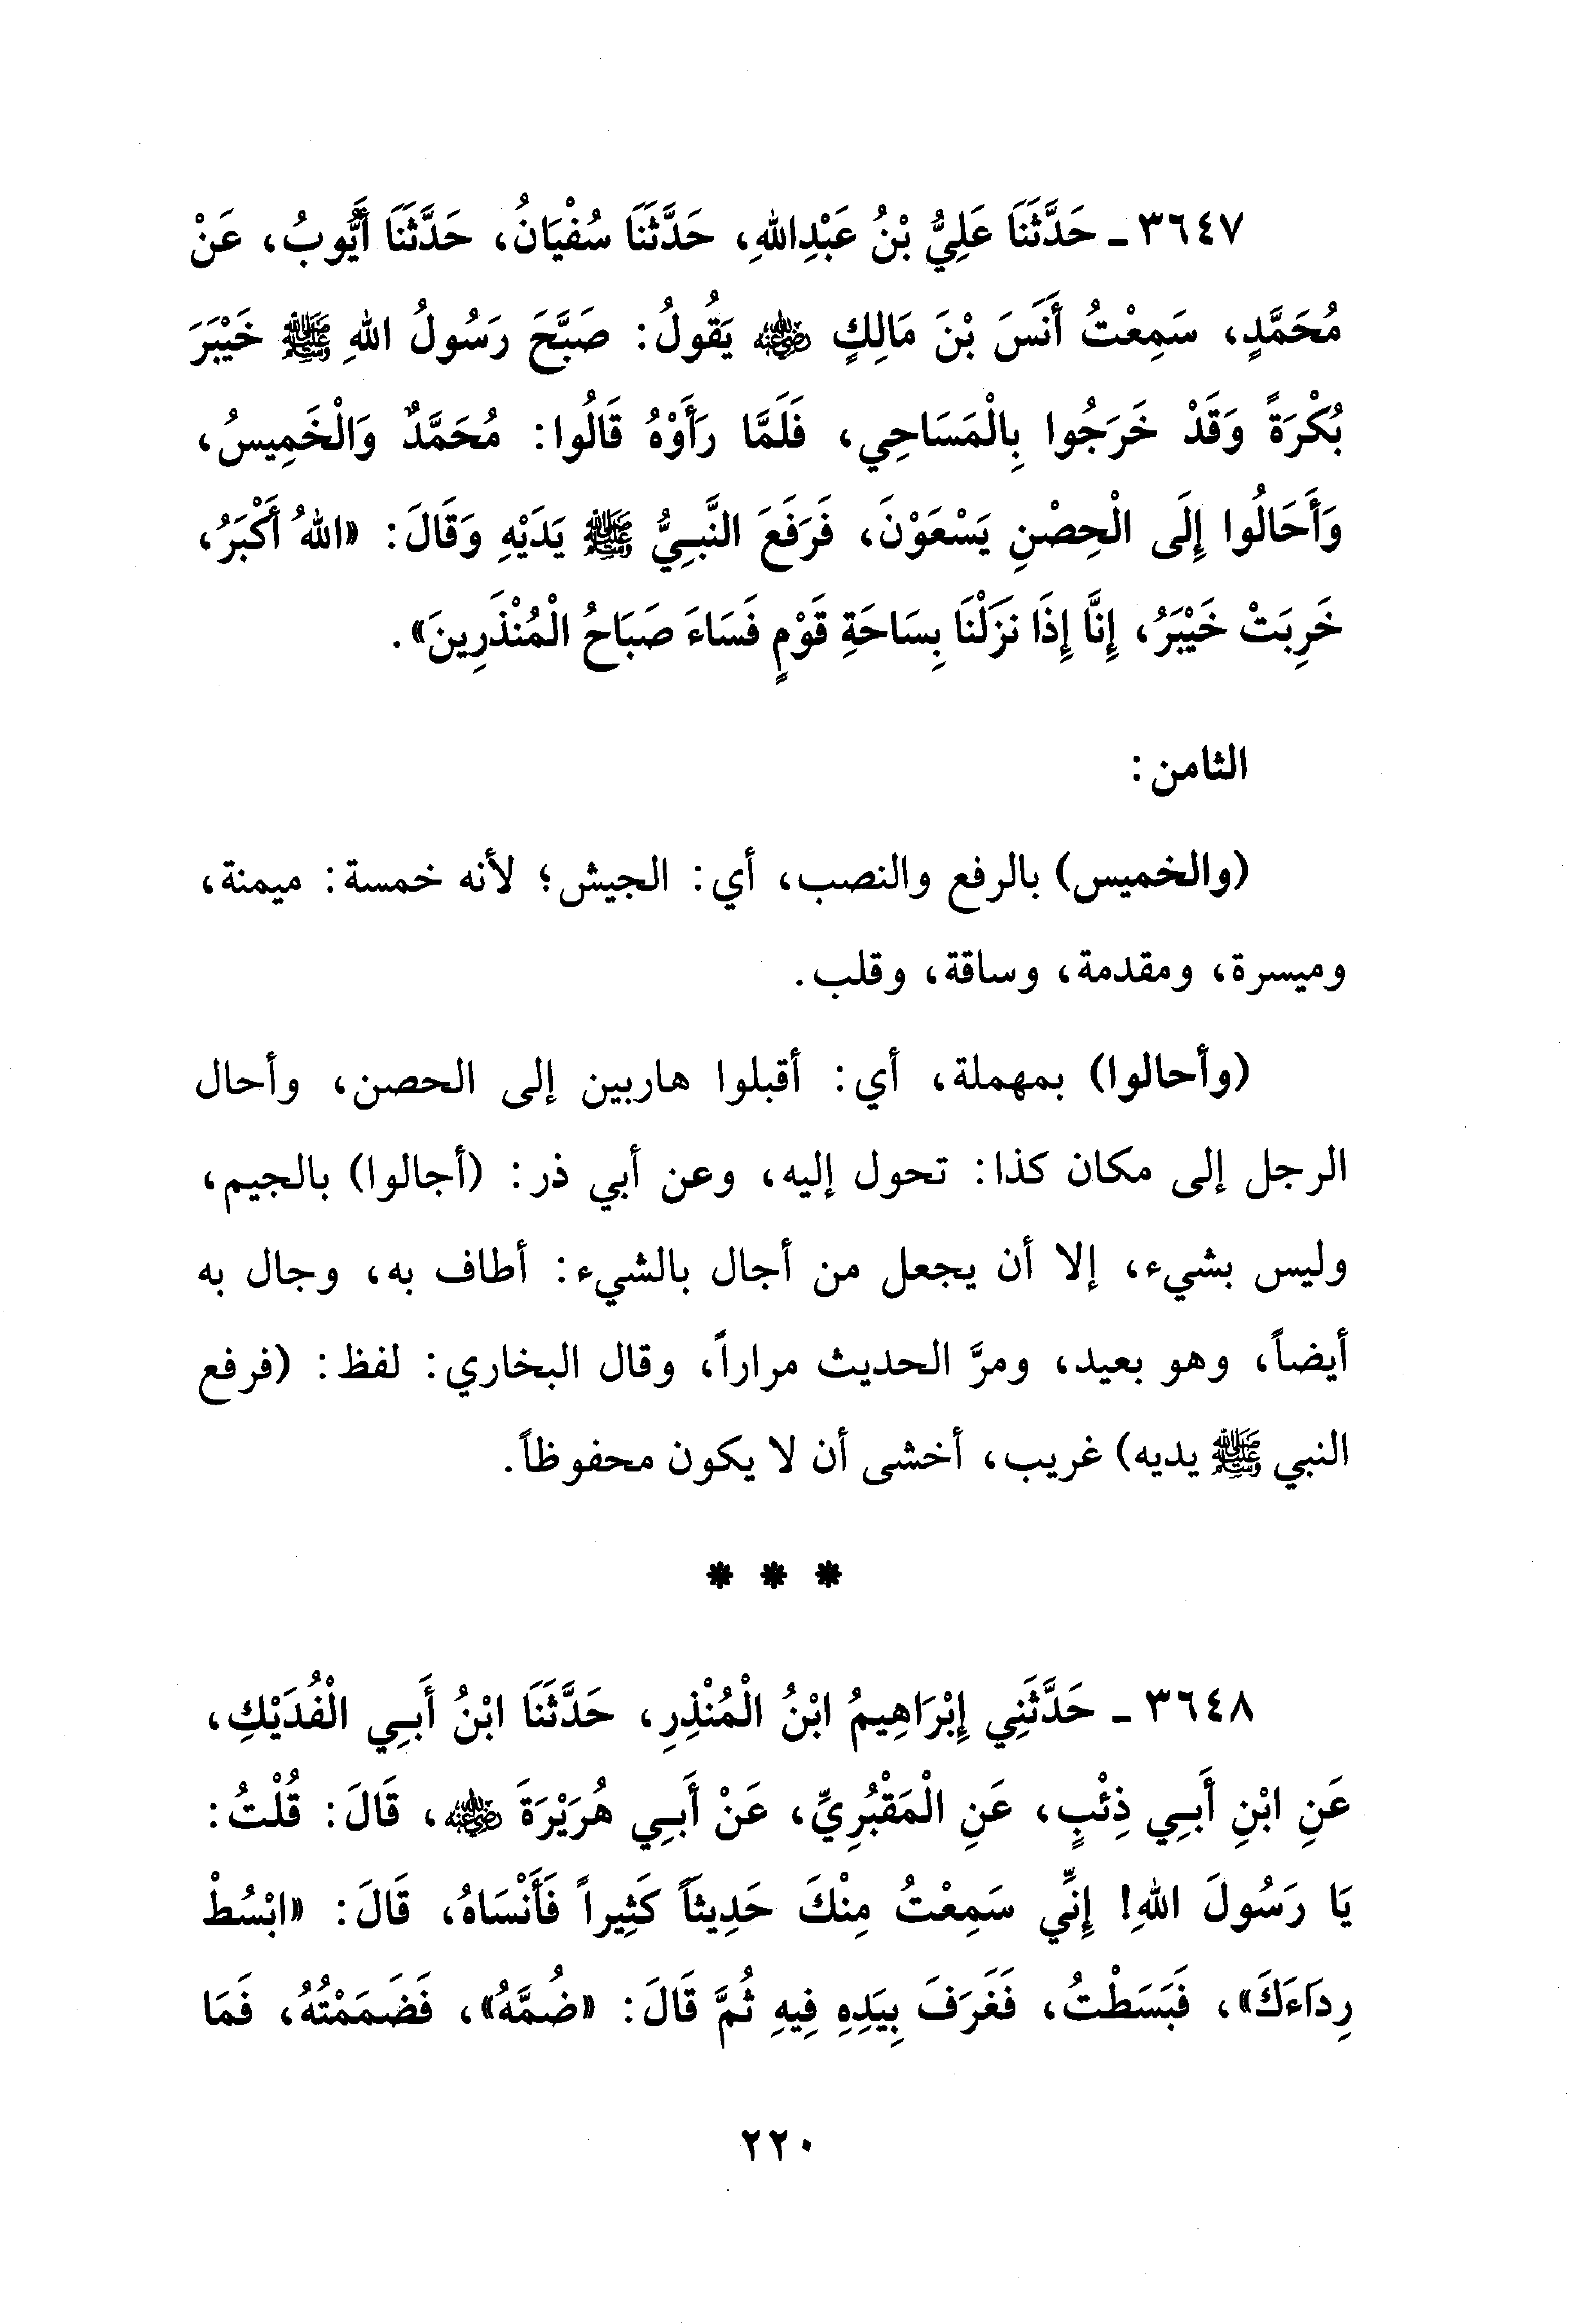 ٣٦٤٧ ـ حَدَّثَنَا عَلِيُّ بْنُ عَبْدِاللهِ، حَدَّثَنَا سُفْيَانُ، حَدَّثَنَا أَيُّوبُ، عَنْ
مُحَمَّدٍ، سَمِعْتُ أَنَسَ بْنَ مَالِكٍ رضي الله عنه يَقُولُ: صَبَّحَ رَسُولُ اللهِ ﷺ خَيْبَرَ
بُكْرَةً وَقَدْ خَرَجُوا بِالْمَسَاحِي، فَلَمَّا رَأَوْهُ قَالُوا: مُحَمَّدٌ وَالْخَمِيسُ،
وَأَحَالُوا إِلَى الْحِصْنِ يَسْعَوْنَ، فَرَفَعَ النَّبِيُّ ﷺ يَدَيْهِ وَقَالَ: «اللهُ أَكْبَرُ،
خَرِبَتْ خَيْبَرُ، إِنَّا إِذَا نَزَلْنَا بِسَاحَةِ قَوْمٍ فَسَاءَ صَبَاحُ الْمُنْذَرِينَ».
الثامن:
(والخميس) بالرفع والنصب، أي: الجيش؛ لأنه خمسة: ميمنة،
وميسرة، ومقدمة، وساقة، وقلب.
(وأحالوا) بمهملة، أي: أقبلوا هاربين إلى الحصن، وأحال
الرجل إلى مكان كذا: تحول إليه، وعن أبي ذر: (أجالوا) بالجيم،
وليس بشيء، إلا أن يجعل من أجال بالشيء: أطاف به، وجال به
أيضاً، وهو بعيد، ومرَّ الحديث مراراً، وقال البخاري: لفظ: (فرفع
النبي ﷺ يديه) غريب، أخشى أن لا يكون محفوظاً.
* * *
٣٦٤٨ ـ حَدَّثَنِي إِبْرَاهِيمُ ابْنُ الْمُنْذِرِ، حَدَّثَنَا ابْنُ أَبِي الْفُدَيْكِ،
عَنِ ابْنِ أَبِي ذِئْبٍ، عَنِ الْمَقْبُرِيِّ، عَنْ أَبِي هُرَيْرَةَ رضي الله عنه، قَالَ: قُلْتُ:
يَا رَسُولَ اللهِ! إِنِّي سَمِعْتُ مِنْكَ حَدِيثاً كَثِيراً فَأَنْسَاهُ، قَالَ: «ابْسُطْ
رِدَاءَكَ»، فَبَسَطْتُ، فَغَرَفَ بِيَدِهِ فِيهِ ثُمَّ قَالَ: «ضُمَّهُ»، فَضَمَمْتُهُ، فَمَا
٢٢٠